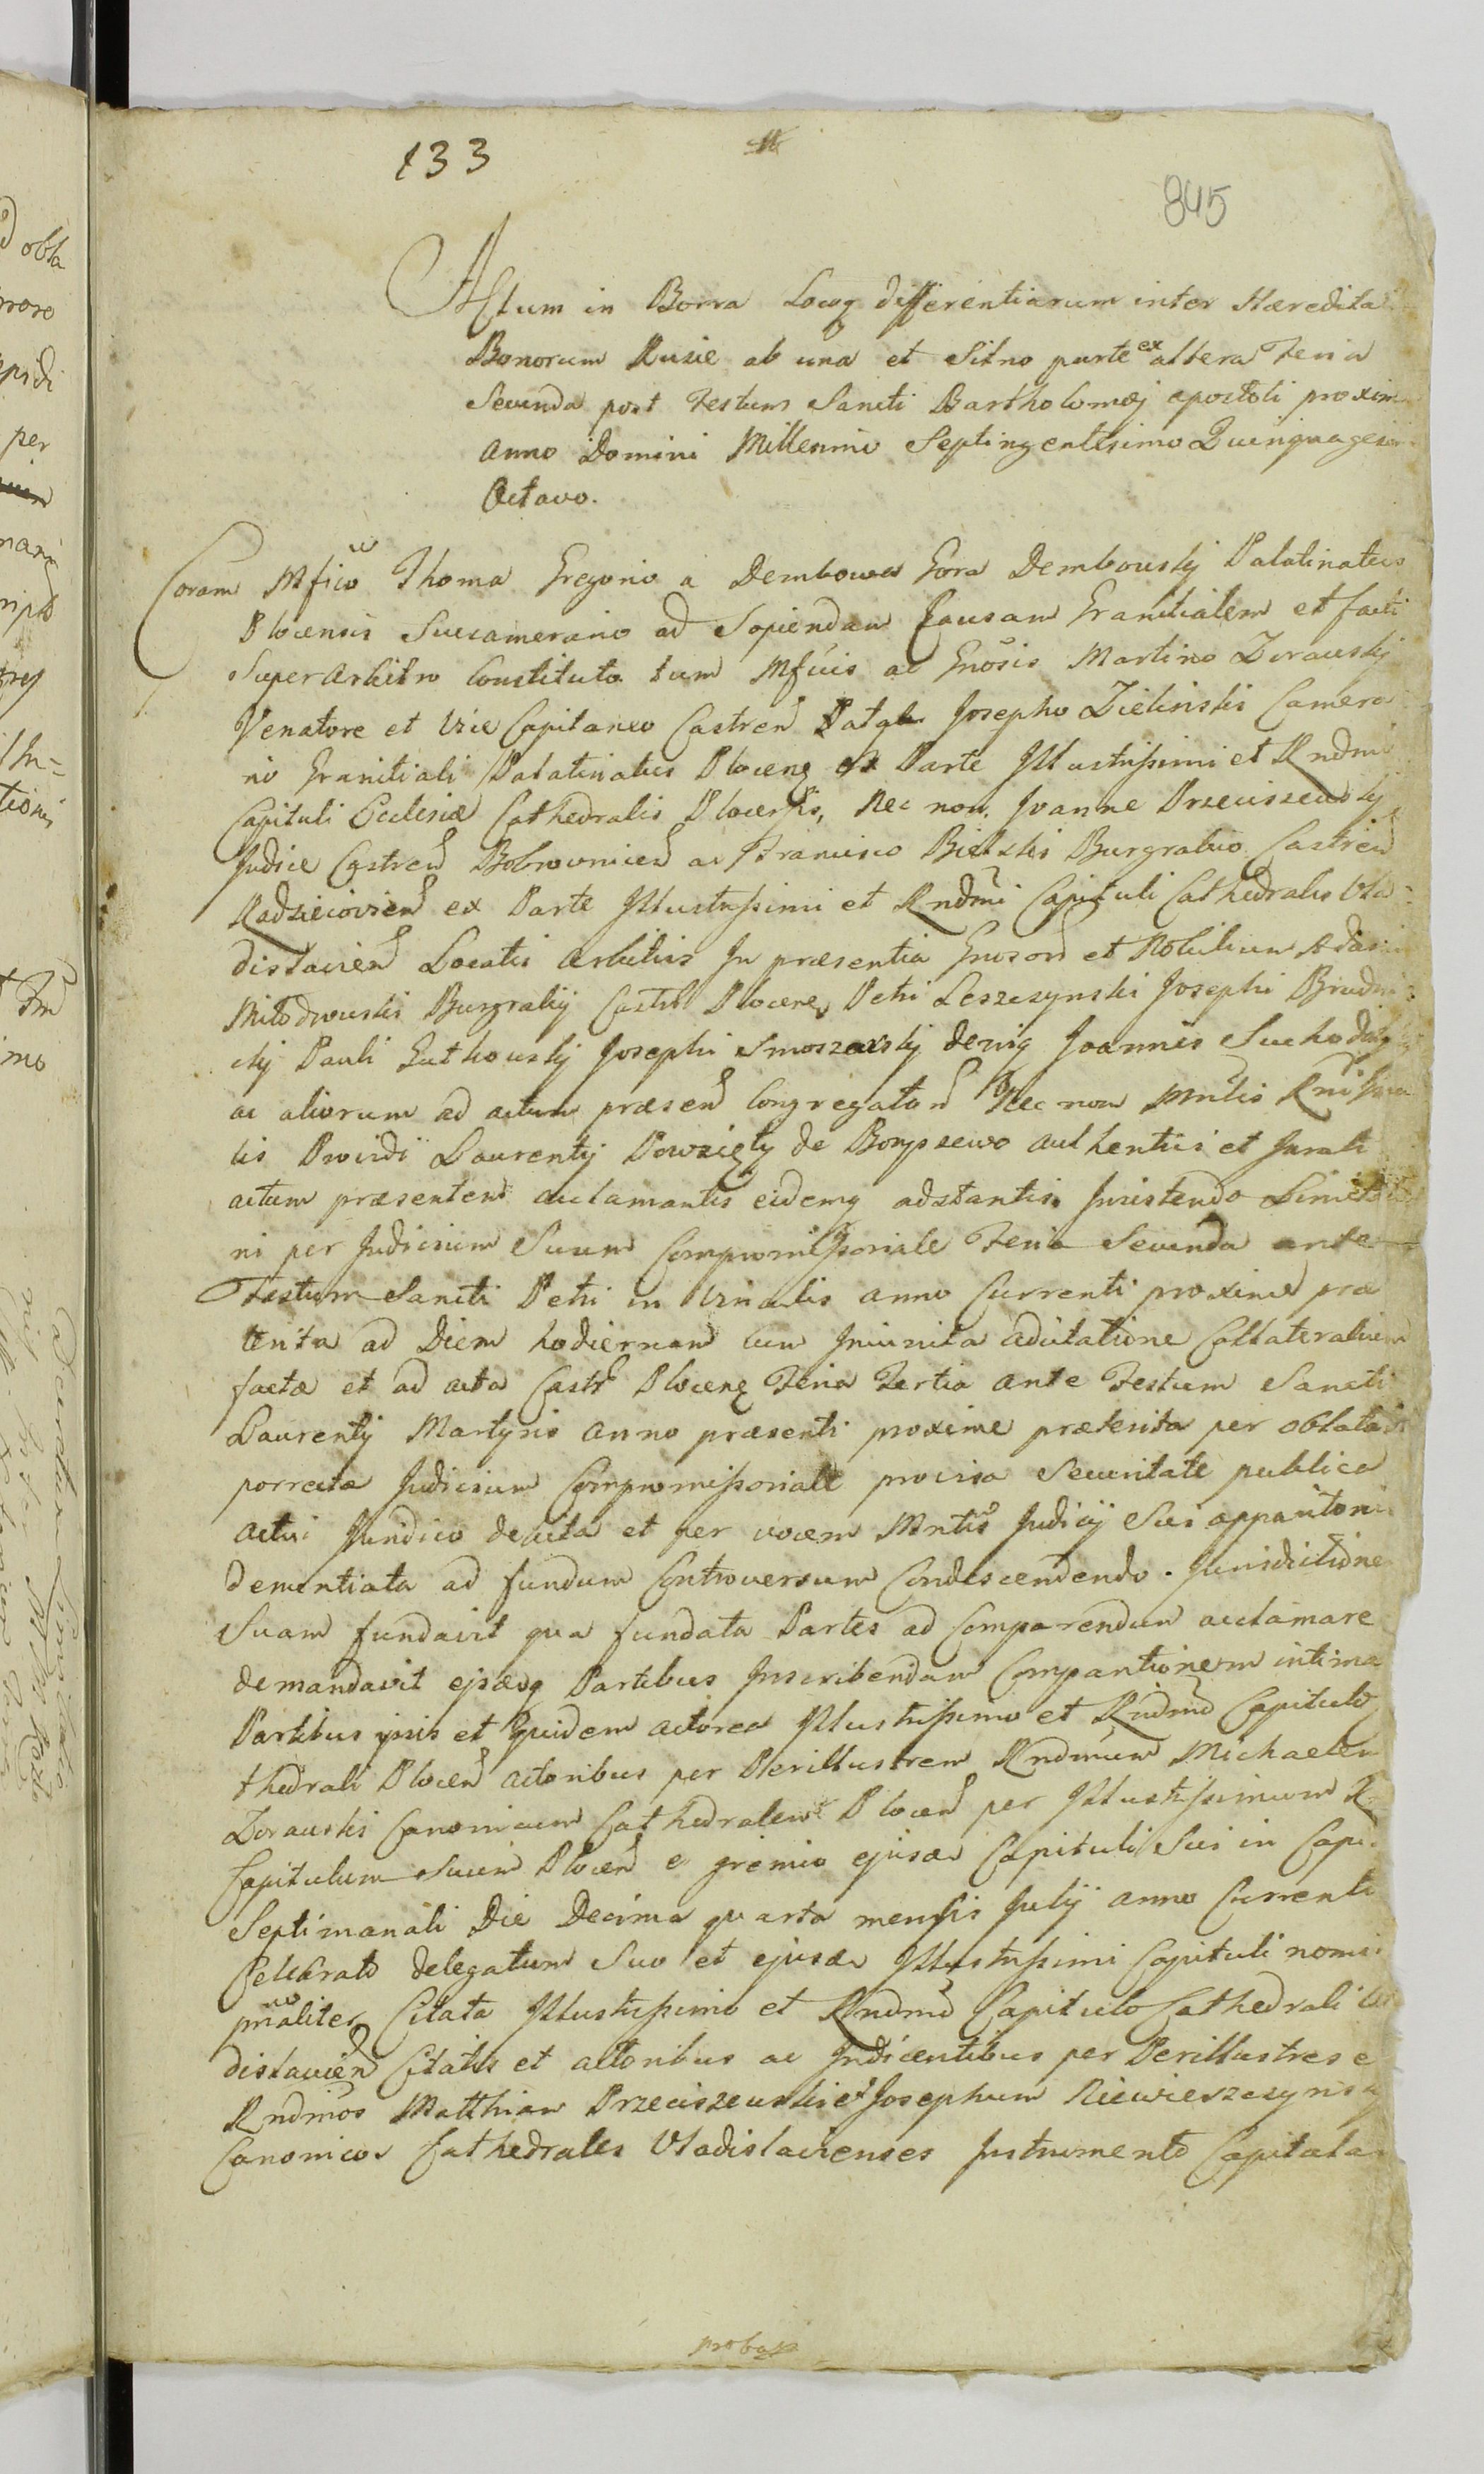 133
845
Actum in Borra Locoq differentiarum inter Hæredita
Bonorum Rusie ab una et Sitno parte ex altera Feria
Secunda post Festum Sancti Bartholomæj apostoli proxim
Anno Domini Millesimo Septingentesimo Quinquagesim
Octavo.
Coram Mfico Thoma Gregorio a Dembowa Gora Dembowskj Palatinatus
Plocensis Succamerario ad Sopiendam Causam Granitialem et facti
Super Arbitro Constituto tum Mficis ac Gnosis Martino Zorawskj
Venatore et Vice Capitaneo Castren Josepho Zielinski Camera
rio Granitiali Palatinatus Plocens ex Parte Illustrissimi et Rndmi
Capituli Ecclesiæ Cathedralis Plocensis, Nec non Joanne Przeciszewskj
Judice Castren Bobrownicen ac Francisco Bielski Burgrabio Castren
Radziejovien ex Parte Illustrissimi et Rndmi Capituli Cathedralis Vla
dislavien Locatis Arbitris In præsentia Gnosor et Nobilium Adami
Miłodrowski Burgrabij Castr Plocens Petri Leszczynski Josephi Brudni
ckj Pauli Gutkowskj Josephi Smoszewskj deniq Joannis Suchodolskj
ac aliorum ad actum præsen Congregator Nec non Mntlis Rni
lis Providi Laurentij Powzięty de Boryszewo authentici et Jurati
actum præsentem acclamantis eidemq adstantis. Insistendo Limita
ni per Judicium Suum Compromissoriale Feria Secunda ante
Festum Sancti Petri in Vinculis anno Currenti proxime præ
terita ad Diem hodiernam cum Iniuncta adcitatione Collateralium
factæ et ad acta Castr Plocens Feria Tertia ante Festum Sancti
Laurentij Martyris anno præsenti proxime præterita per oblatam
porrectæ Judicium Compromissoriale previa Securitate publica
actui Juridico decreta et per vocem Mntlis Judicij Sui apparitoris
denuntiata ad fundum Controversum Condescendendo. Jurisdictione
Suam fundavit qua fundata Partes ad Comparendum acclamare
demandavit ejsdeq Partibus Inscribendam Comparitionem intima
Partibus ipsis et quidem actorea Illustrissimo et Rndmo Capitulo
thedrali Plocen actoribus per Perillustrem Rndmum Michaelem
Zorawski Canonicum Cathedralem Plocen per Illustrissimum R
Capitulum Suum Plocen e gremio ejusd Capituli Sui in Capi
Septimanali Die Decima quarta mensis Julij anno Currenti
Celebrato delegatum Suo et ejusd Illustrissimi Capituli nomi
pnaliter Citata Illustrissimo et Rndmo Capitulo Cathedrali Vla
dislavien Citatis et actoribus ac Indicentibus per Perillustres e
Rndmos Matthiam Przeciszewski et Josephum Niewieszczynskj
Canonicos Cathedrales Vladislavienses Instrumento Capitula